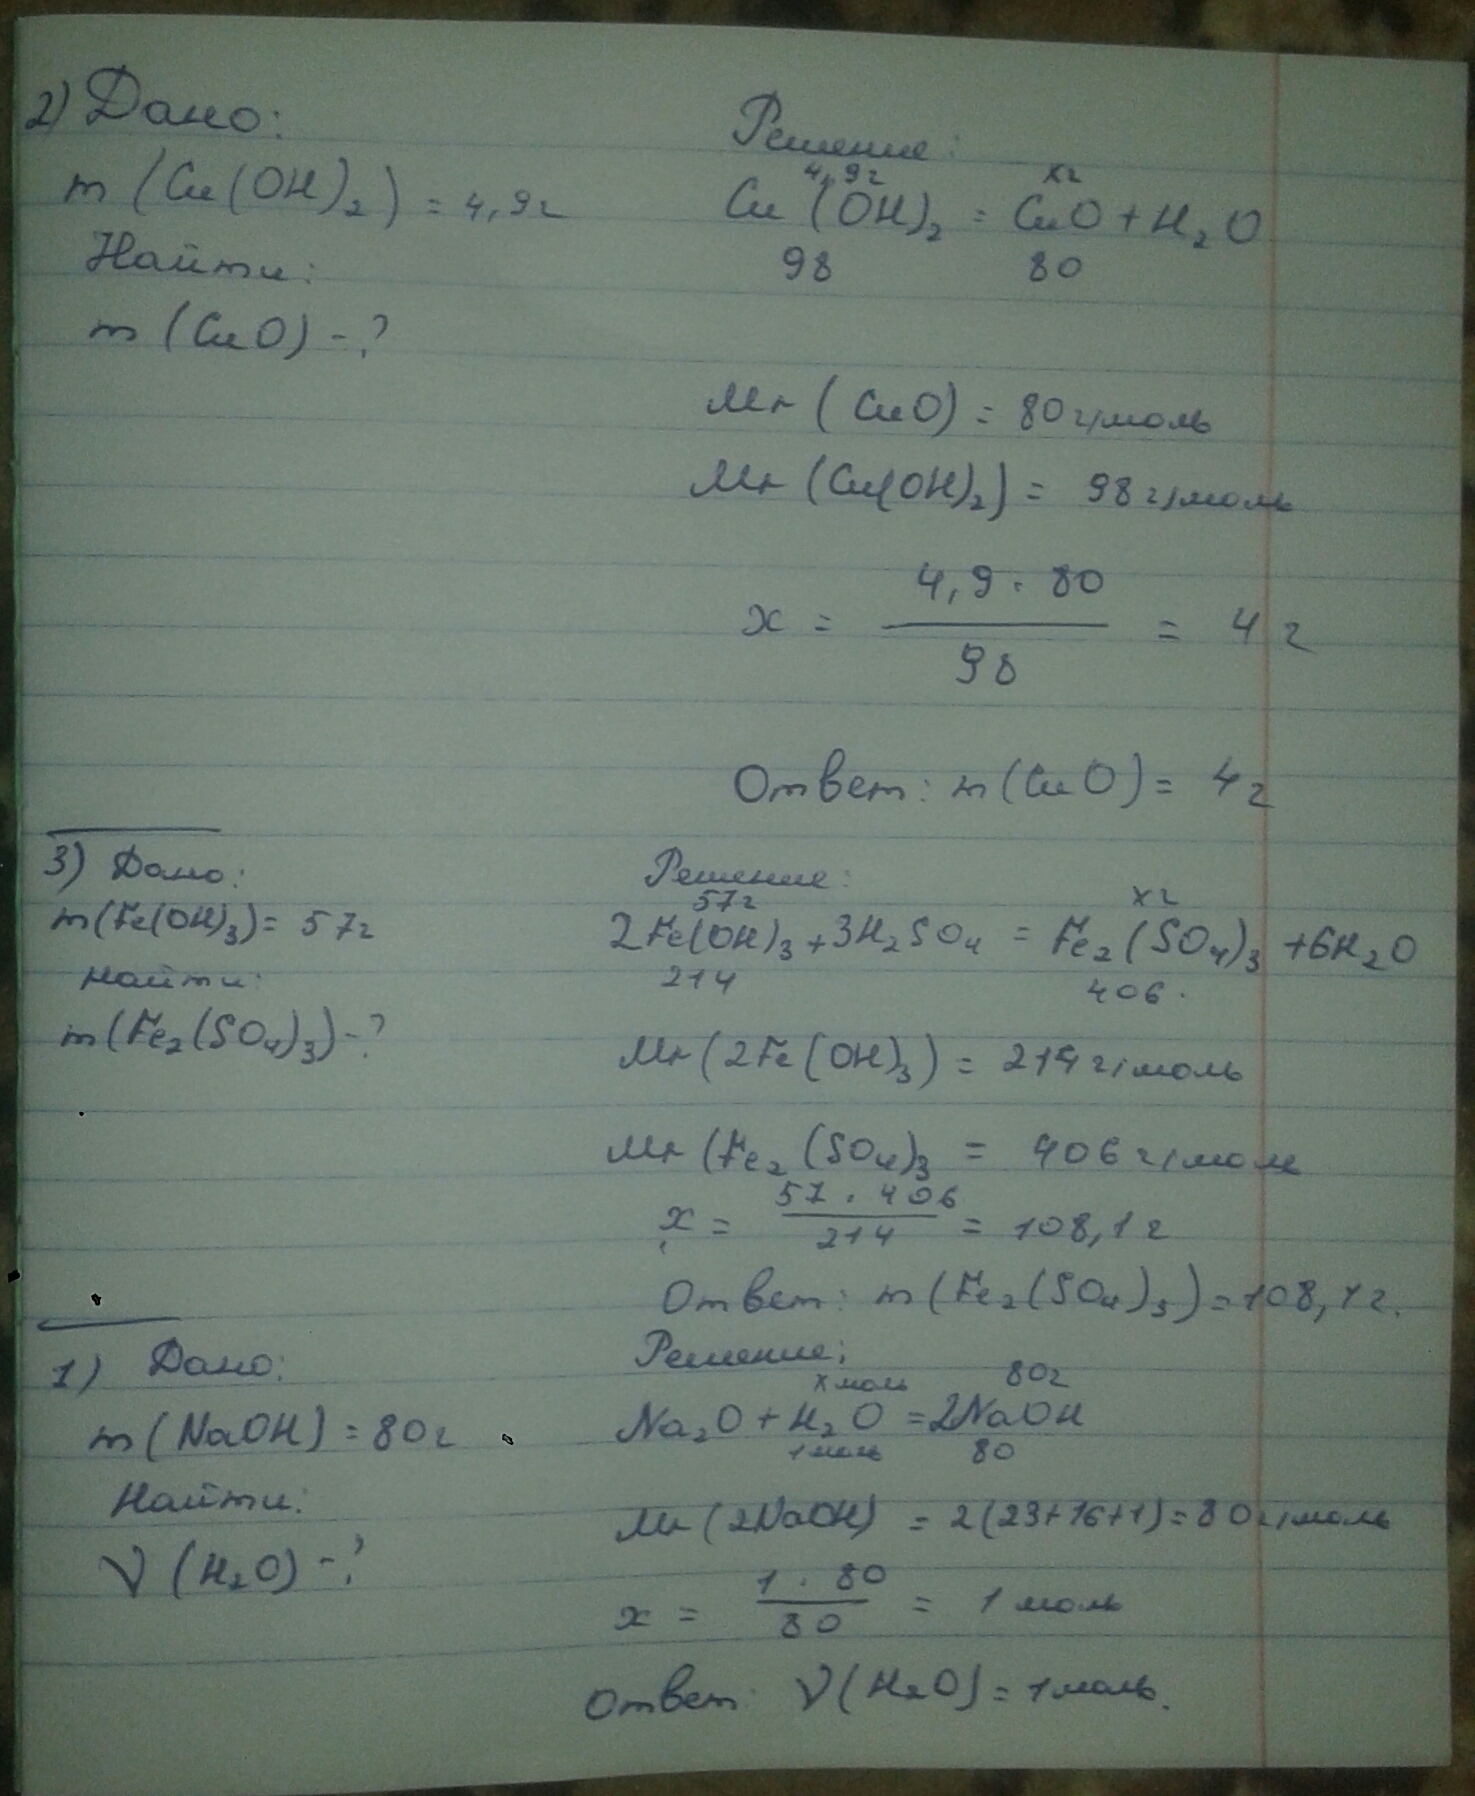 2) Дано:
m (Cu(OH)2) = 4,9г
Найти:
m (CuO) - ?
Решение:
4,9г xг
Cu(OH)2 = CuO + H2O
98 80
Mr (CuO) = 80 г/моль
Mr (Cu(OH)2) = 98 г/моль
x = 4,9 · 80 / 98 = 4 г
Ответ: m(CuO) = 4г
3) Дано:
m(Fe(OH)3) = 57г
Найти:
m(Fe2(SO4)3) - ?
Решение:
57г xг
2Fe(OH)3 + 3H2SO4 = Fe2(SO4)3 + 6H2O
214 406.
Mr (2Fe(OH)3) = 214 г/моль
Mr (Fe2(SO4)3 = 406 г/моль
x = 57 · 406 / 214 = 108,1 г
Ответ: m(Fe2(SO4)3) = 108,1г.
1) Дано:
m(NaOH) = 80г
Найти:
ν (H2O) - ?
Решение:
x моль 80г
Na2O + H2O = 2NaOH
1 моль 80
Mr (2NaOH) = 2(23+16+1) = 80 г/моль
x = 1 · 80 / 80 = 1 моль
Ответ: ν(H2O) = 1 моль.